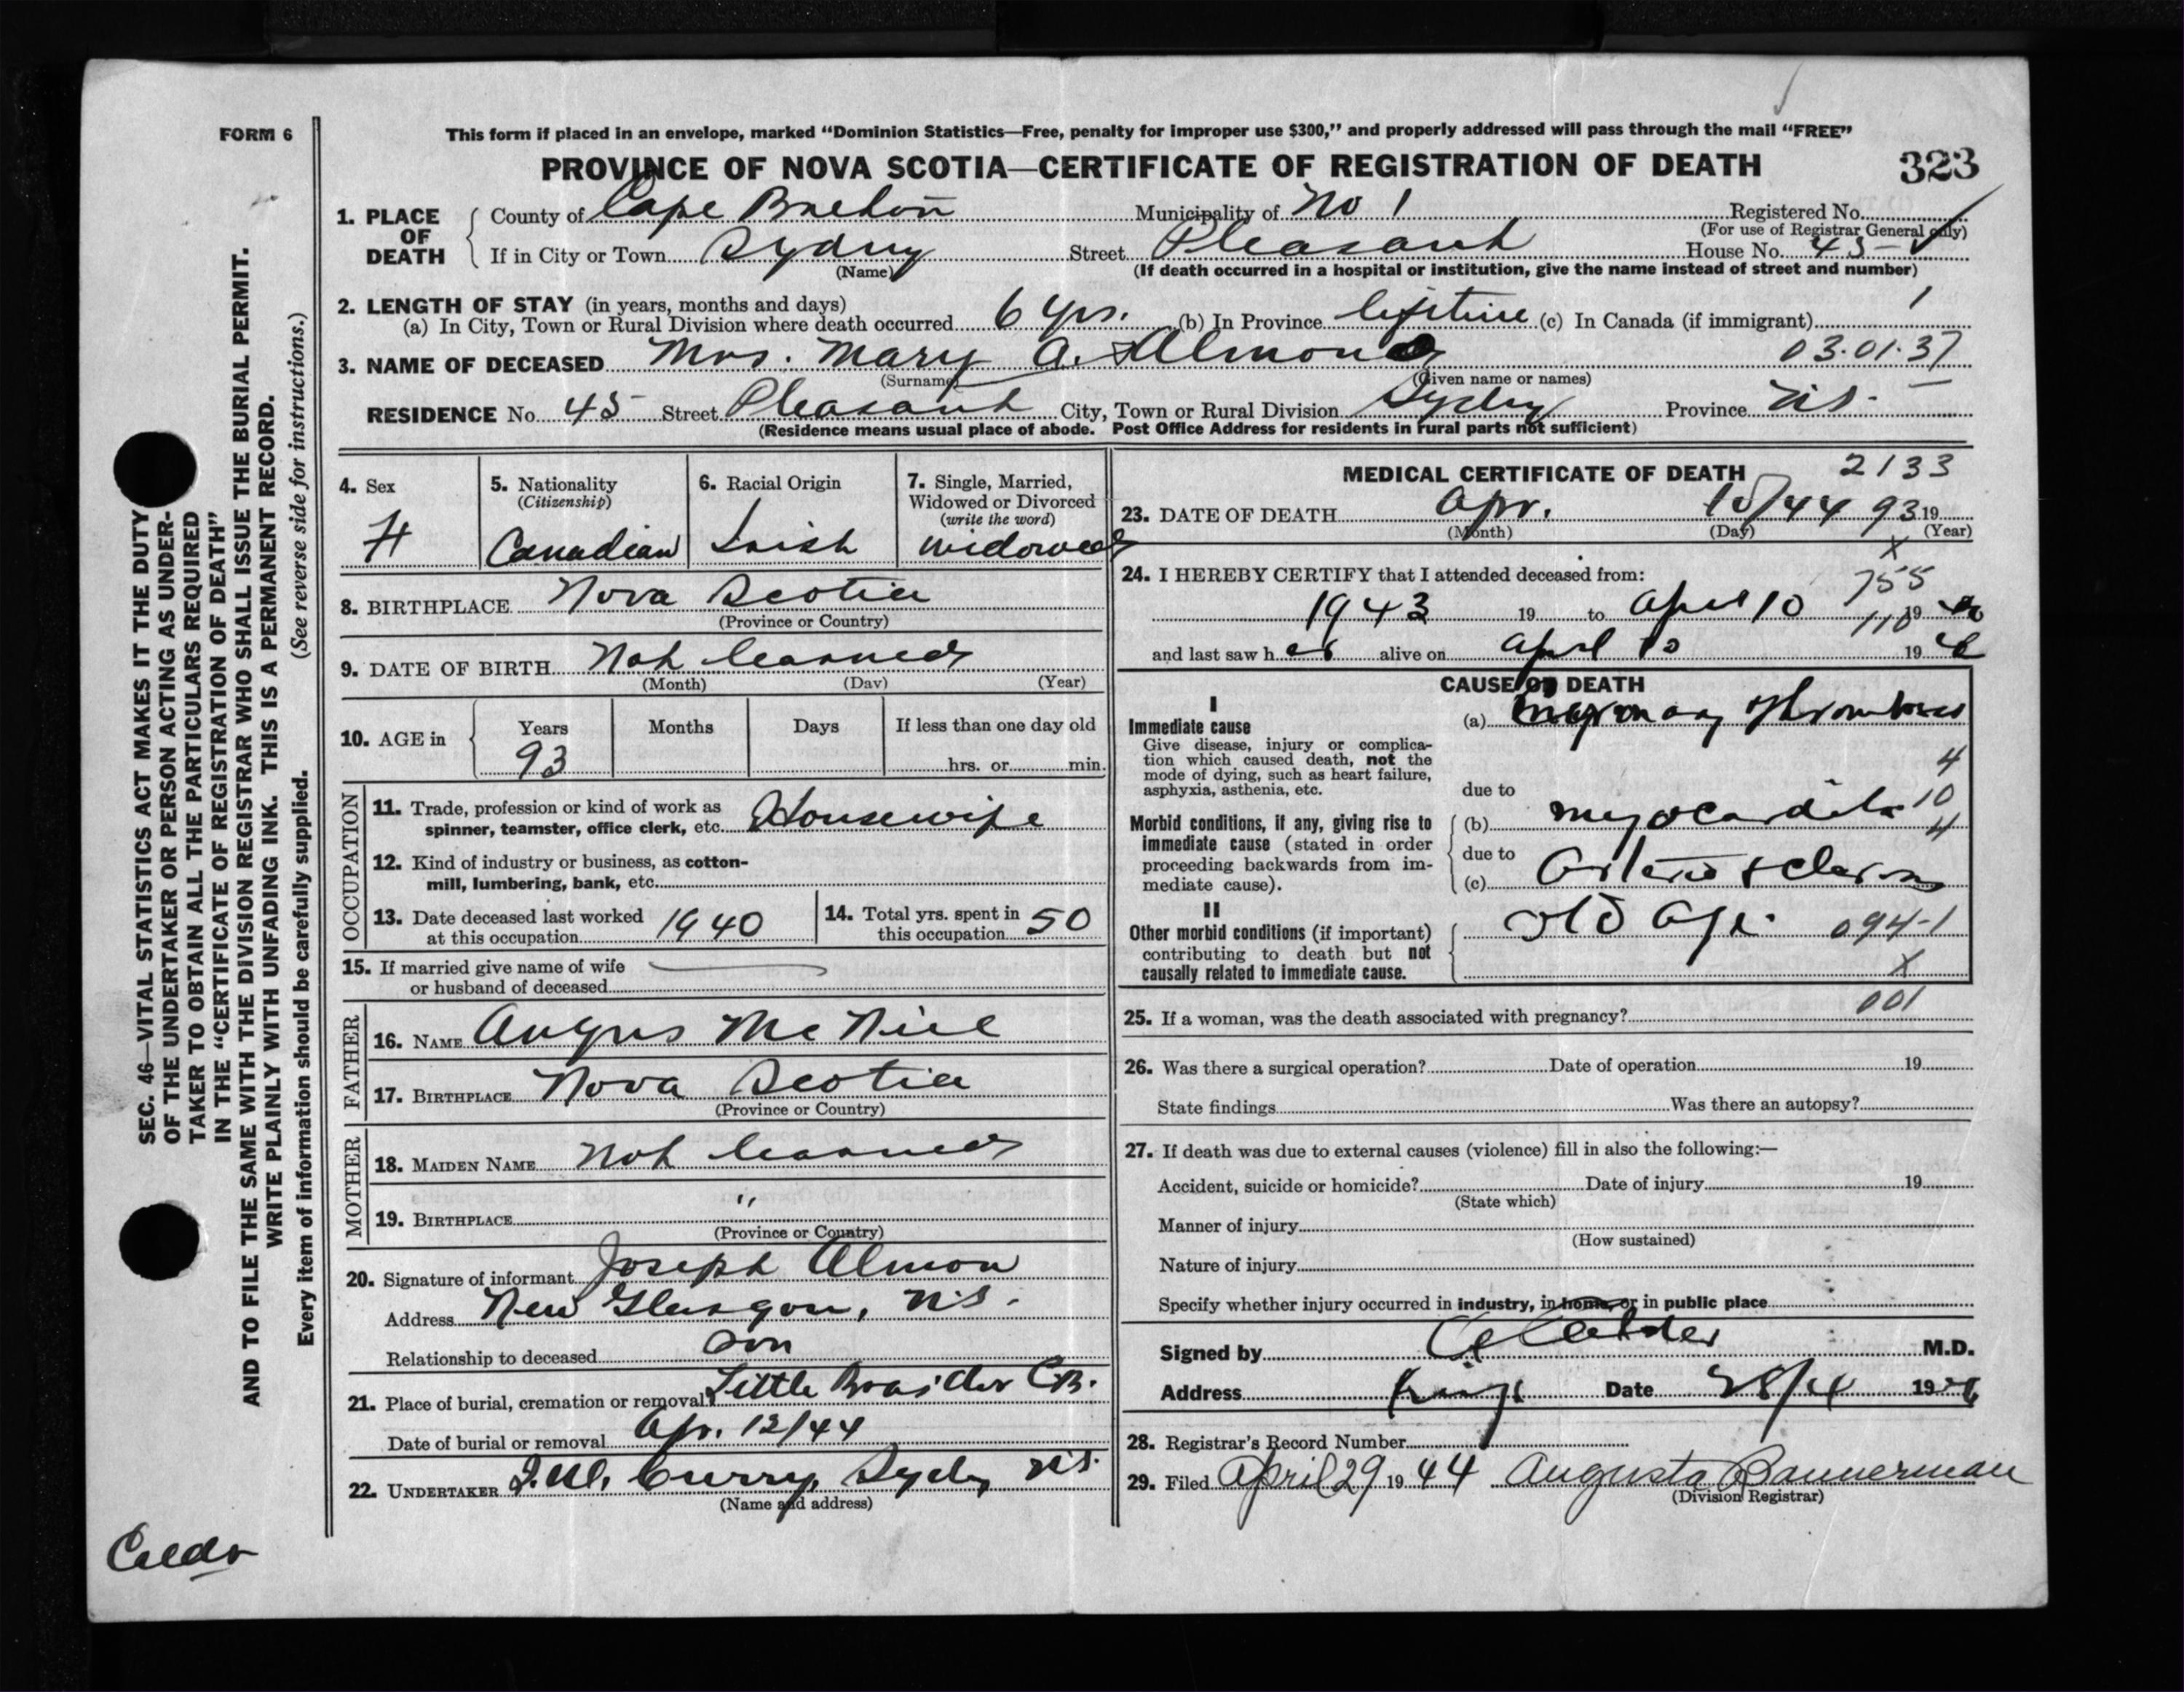 FORM 6
This form if placed in an envelope, marked "Dominion Statistics—Free, penalty for improper use $300," and properly addressed will pass through the mail "FREE"
PROVINCE OF NOVA SCOTIA—CERTIFICATE OF REGISTRATION OF DEATH 323
1. PLACE OF DEATH
County of Cape Breton Municipality of No 1 Registered No.
(For use of Registrar General only)
If in City or Town Sydney Street Pleasant House No. 45
(Name) (If death occurred in a hospital or institution, give the name instead of street and number)
2. LENGTH OF STAY (in years, months and days) 1
(a) In City, Town or Rural Division where death occurred 6 yrs. (b) In Province lifetime (c) In Canada (if immigrant)
3. NAME OF DECEASED Mrs. Mary A. Almon 03.01.37
(Surname) (Given name or names)
RESIDENCE No. 45 Street Pleasant City, Town or Rural Division Sydney Province N.S.
(Residence means usual place of abode. Post Office Address for residents in rural parts not sufficient)
4. Sex
F
5. Nationality
(Citizenship)
Canadian
6. Racial Origin
Irish
7. Single, Married,
Widowed or Divorced
(write the word)
widowed
8. BIRTHPLACE Nova Scotia
(Province or Country)
9. DATE OF BIRTH Not learned
(Month) (Day) (Year)
10. AGE in
Years Months Days If less than one day old
93 hrs. or min.
OCCUPATION
11. Trade, profession or kind of work as
spinner, teamster, office clerk, etc. Housewife
12. Kind of industry or business, as cotton-
mill, lumbering, bank, etc.
13. Date deceased last worked
at this occupation 1940
14. Total yrs. spent in
this occupation 50
15. If married give name of wife
or husband of deceased
FATHER
16. NAME Angus McNiel
17. BIRTHPLACE Nova Scotia
(Province or Country)
MOTHER
18. MAIDEN NAME Not learned
19. BIRTHPLACE "
(Province or Country)
20. Signature of informant Joseph Almon
Address New Glasgow, N.S.
Relationship to deceased son
21. Place of burial, cremation or removal Little Bras d'or C.B.
Date of burial or removal Apr. 12/44
22. UNDERTAKER Curry, Sydney N.S.
(Name and address)
MEDICAL CERTIFICATE OF DEATH 2133
23. DATE OF DEATH Apr. 10/44 93 19
(Month) (Day) (Year)
X
24. I HEREBY CERTIFY that I attended deceased from:
755
1943 19 to April 10 19
110
and last saw her alive on April 10 19
CAUSE OF DEATH
I
Immediate cause
Give disease, injury or complica-
tion which caused death, not the
mode of dying, such as heart failure,
asphyxia, asthenia, etc.
(a) Coronary thrombosis
4
10
4
due to
Morbid conditions, if any, giving rise to
immediate cause (stated in order
proceeding backwards from im-
mediate cause).
(b) myocarditis
due to
(c) Arteriosclerosis
II
Other morbid conditions (if important)
contributing to death but not
causally related to immediate cause.
old age 094-1
X
001
25. If a woman, was the death associated with pregnancy?
26. Was there a surgical operation? Date of operation 19
State findings Was there an autopsy?
27. If death was due to external causes (violence) fill in also the following:—
Accident, suicide or homicide? Date of injury 19
(State which)
Manner of injury
(How sustained)
Nature of injury
Specify whether injury occurred in industry, in home, or in public place
Signed by M.D.
Address Date 28/4 19
28. Registrar's Record Number
29. Filed April 29 19 44 Augusta Bannerman
(Division Registrar)
SEC. 46—VITAL STATISTICS ACT MAKES IT THE DUTY
OF THE UNDERTAKER OR PERSON ACTING AS UNDER-
TAKER TO OBTAIN ALL THE PARTICULARS REQUIRED
IN THE "CERTIFICATE OF REGISTRATION OF DEATH"
AND TO FILE THE SAME WITH THE DIVISION REGISTRAR WHO SHALL ISSUE THE BURIAL PERMIT.
WRITE PLAINLY WITH UNFADING INK. THIS IS A PERMANENT RECORD.
Every item of information should be carefully supplied. (See reverse side for instructions.)